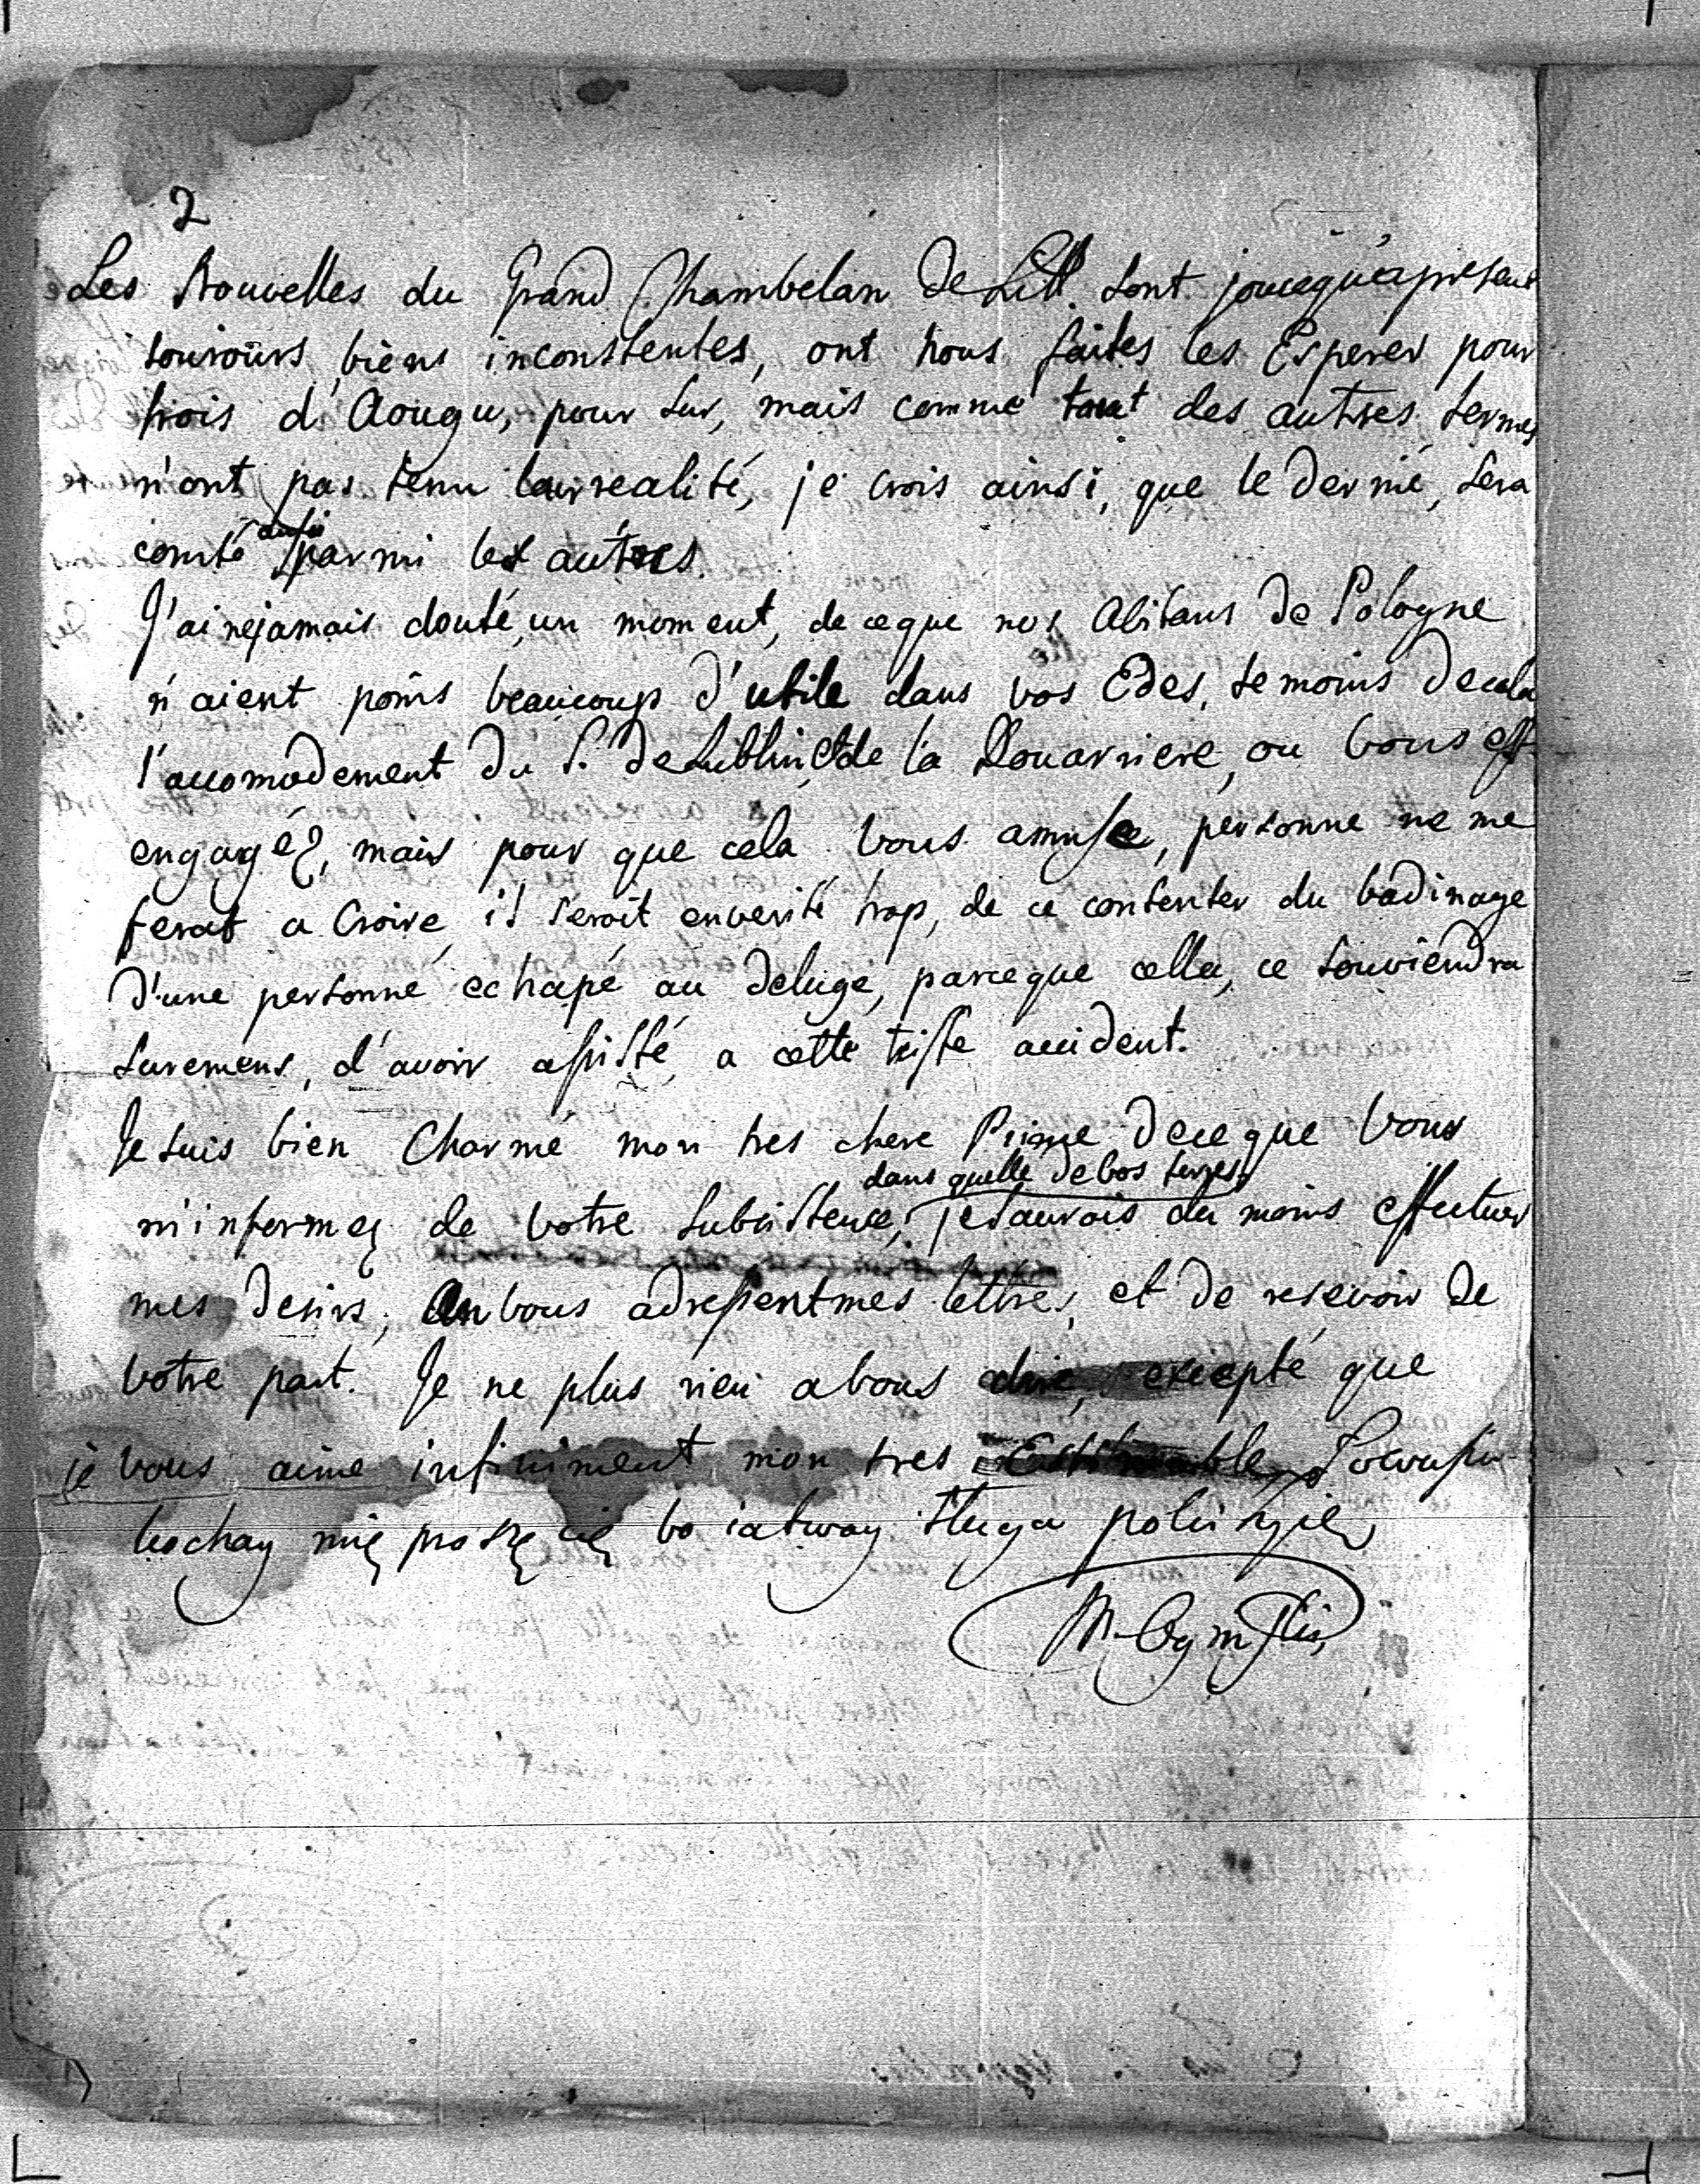 2
Les Nouvelles du Grand Chambelan de Litt. sont joucequ'apresent
toujours biens inconstentes, ont nous faites les Esperer pour
trois d'Aougu, pour sur, mais comme tout des autres termes
n'ont pas tenu leur realité, je crois ainsi, que le dernié, sera
comté aussi parmi les autres.
J'ai nejamais douté, un moment, de ceque nos Abitans de Pologne
n'aient poins beaucoup d'utile dans vos Edes, temoins decela
l'accomodement du P. de Lublin et de la Douarriere, ou Vous est
engagéz, mais pour que cela Vous amuse, personne ne me
ferat a Croire, il seroit enverité trop, de ce contenter du badinage
d'une personne echapé au deluge, parceque celle, ce souviendra
suremens, d'avoir assisté a cette triste accident.
Je suis bien Charmé mon tres chere Prince deceque Vous
dans quelle de vos terres,
m'informez de votre subsistence, je saurois du moins effectuer
mes desirs, en vous adressent mes lettres, et de resevoir de
votre part. Je ne plus rien a vous dire, excepté que
je vous aime infiniment mon tres Estimable
kochay mię proszę cię bo iatwoy sługa
M. Oginski